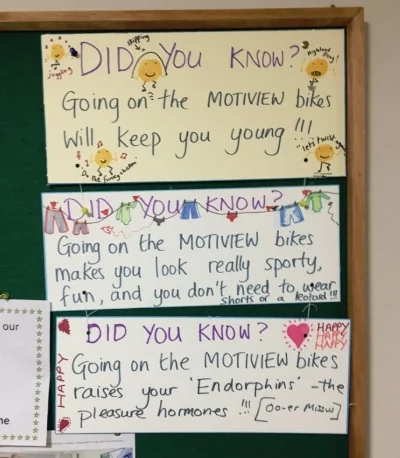 DID YOU KNOW?
skipping
Highland Fling!
jogging
Going on the MOTIVIEW bikes
will keep you young !!!
Do the funky chicken
"let's twist again"
DID YOU KNOW?
Going on the MOTIVIEW bikes
makes you look really sporty,
fun, and you don't need to wear
shorts or a leotard!!!
DID YOU KNOW?
HAPPY
HAPPY
HAPPY
HAPPY
Going on the MOTIVIEW bikes
raises your 'Endorphins' - the
pleasure hormones !!! [Oo-er Missw]
our
me